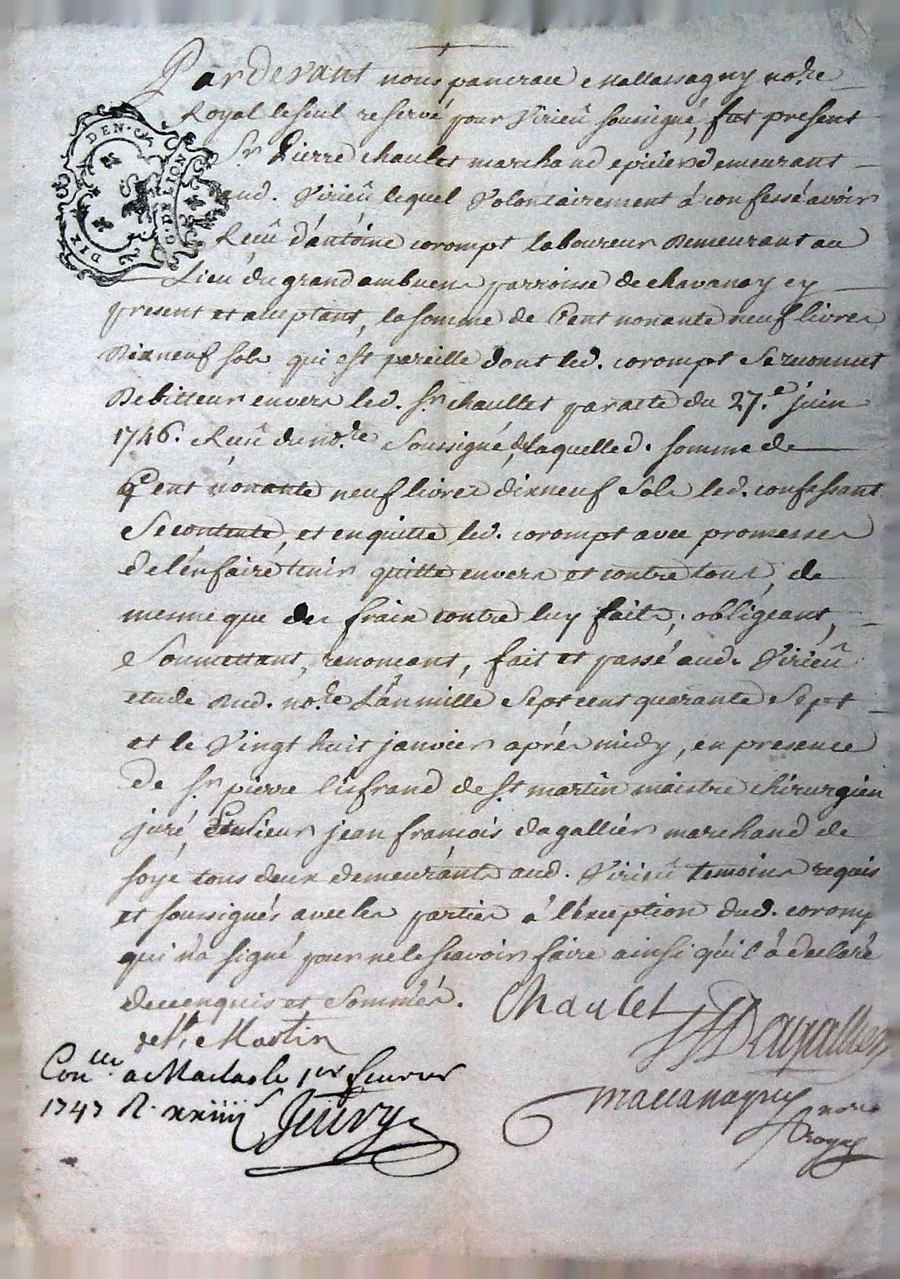 Pardevant nous pancrace Mallassagny no.re
Royal le seul reservé pour Virieû soussigné, fut present
Sr Pierre chaulet marchand epicier demeurant
aud. Virieû lequel Volontairement à confessé avoir
Receû d'antoine corompt laboureur demeurant au
Lieu du grand ambuens parroisse de chavanay cy
present et aceptant, la somme de Cent nonante neuf livres
dixneuf sols qui est pareille dont led. corompt se reconnut
debitteur envers led. Sr chaullet par acte du 27.e juin
1746. Receû du no.re Soussigné, de laquelle d. somme de
Cent nonante neuf livres dixneuf sols led. confessant
se contente, et en quitte led. corompt avec promesses
de l'en faire tenir quitte envers et contre tous, de
mesme que des frais contre luy faits, obligeant,
Soumettant, renoncant, fait et passé aud. Virieû
etude dud. no.re L'an mille Sept cent quarante Sept
et le Vingt huit janvier aprés midy, en presence
de Sr pierre lisfrand de St martin maistre chirurgien
juré, Et sieur jean francois dagallier marchand de
soye tous deux demeurants aud. Virieû temoins requis
et soussignés avec les parties à l'exception dud. corompt
qui n'a signé pour ne le scavoir faire ainsi qu'il à declaré
de ce enquis et Sommés.
Chaulet
de St. Martin
Dagallier
Con.lle a Maclas le 1er fevrier
1747 R. xxiiii s
Mallassagny no.re
royal
DIX DEN. G. D. DE LION